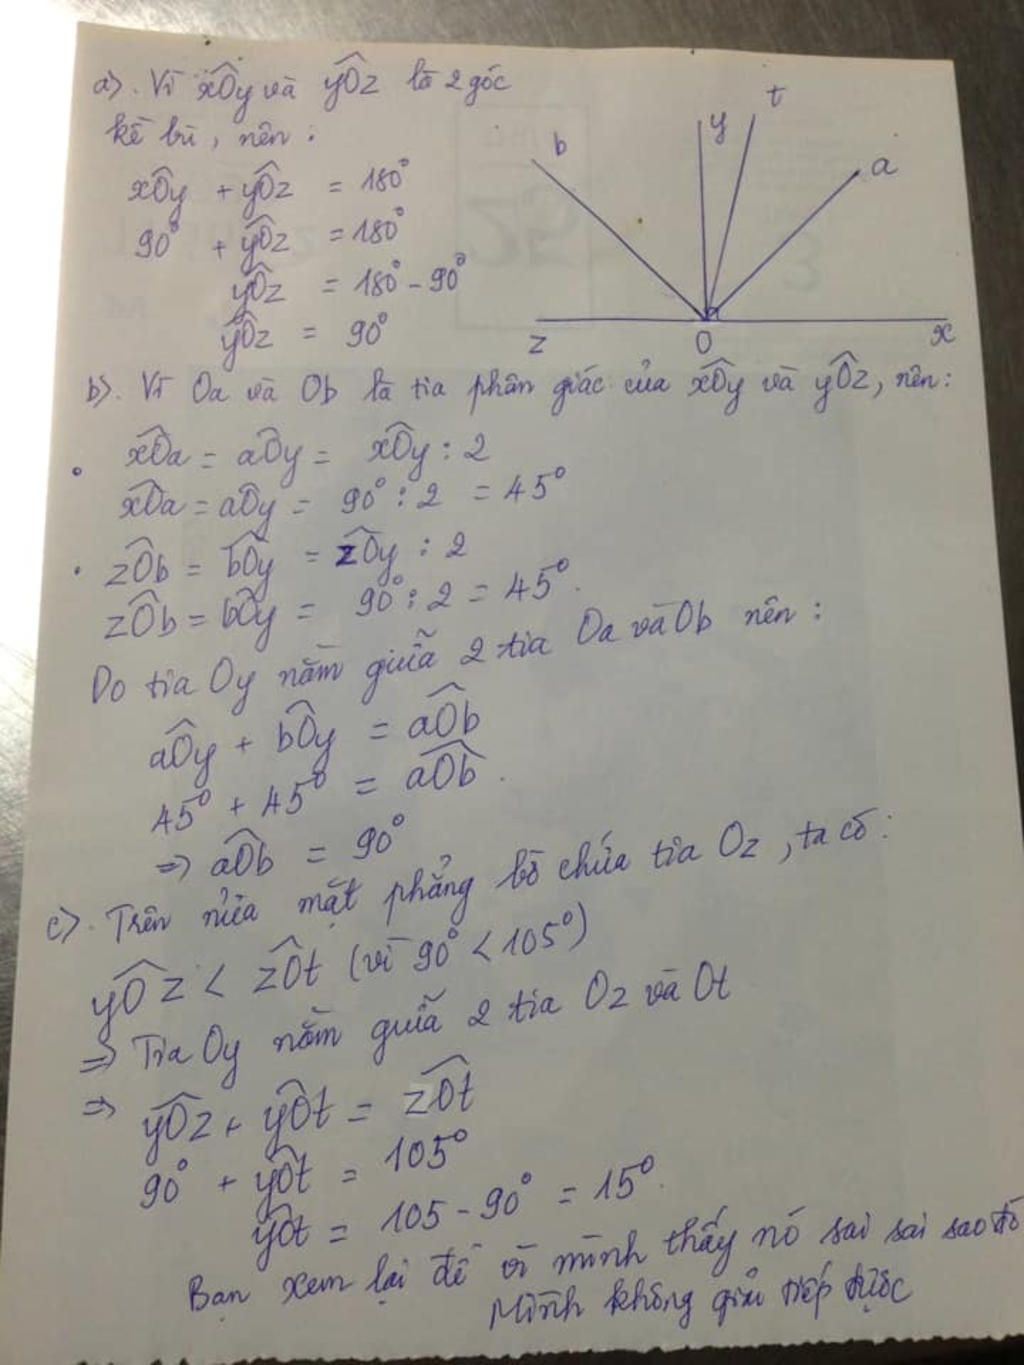 a). Vì xÔy và yÔz là 2 góc
kề bù, nên :
xÔy + yÔz = 180°
90° + yÔz = 180°
yÔz = 180° - 90°
yÔz = 90°
b
y
t
a
z
O
x
b). Vì Oa và Ob là tia phân giác của xÔy và yÔz, nên:
• xÔa = aÔy = xÔy : 2
xÔa = aÔy = 90° : 2 = 45°
• zÔb = bÔy = zÔy : 2
zÔb = bÔy = 90° : 2 = 45°.
Do tia Oy nằm giữa 2 tia Oa và Ob nên :
aÔy + bÔy = aÔb
45° + 45° = aÔb.
=> aÔb = 90°
c). Trên nửa mặt phẳng bờ chứa tia Oz, ta có:
yÔz < zÔt (vì 90° < 105°)
=> Tia Oy nằm giữa 2 tia Oz và Ot
=> yÔz + yÔt = zÔt
90° + yÔt = 105°
yÔt = 105 - 90° = 15°.
Bạn xem lại đề vì mình thấy nó sai sai sao đó
Mình không giải tiếp được